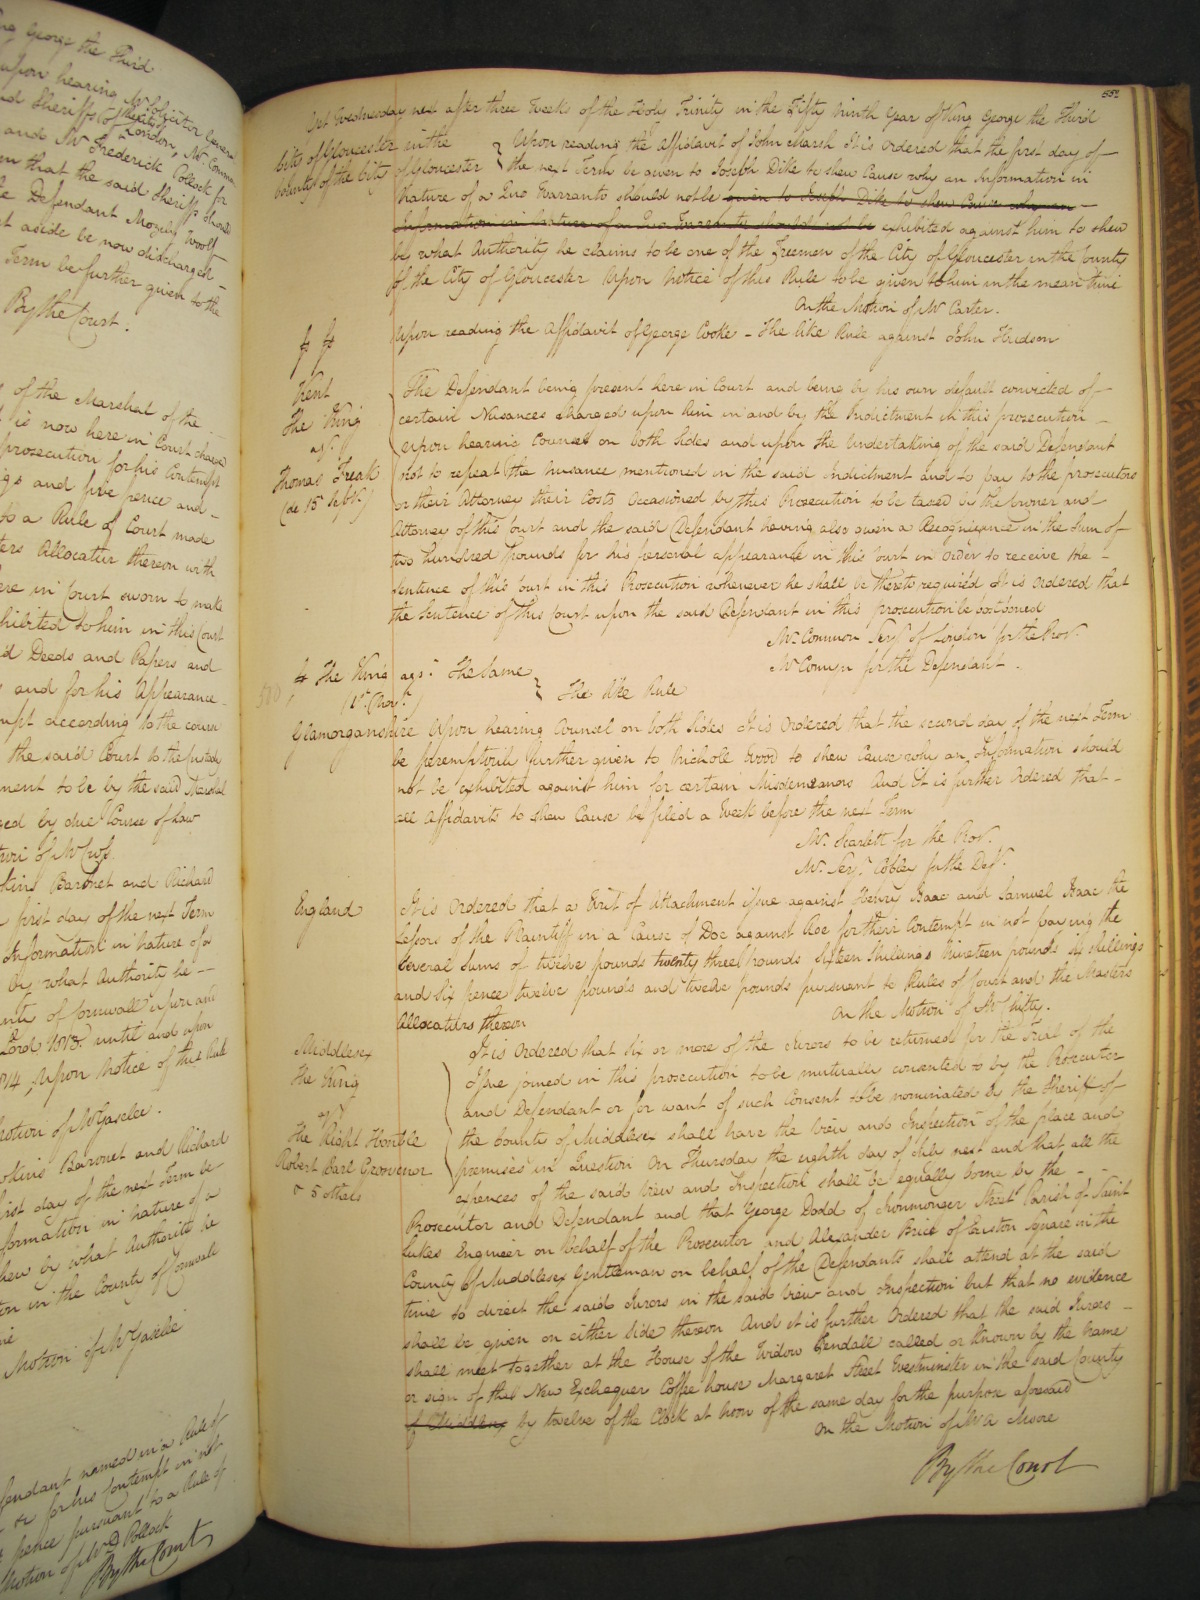 ng George the Third
upon hearing Mr Solicitor General
nd Sheriffs of London, Mr Common
and Mr Frederick Pollock for
m that the said Sheriff should
e Defendant Moses Woolf
t aside be now discharged
Term be further given to the
By the Court.
of the Marshal of the
is now here in Court charged
prosecution for his Contempt
gs and five pence and
to a Rule of Court made
ters Allocatur thereon with
ere in Court sworn to make
hibited to him in this Court
d Deeds and Papers and
and for his Appearance
mpt according to the course
the said Court to the Custody
ment to be by the said Marshal
ged by due Course of Law
tion of Mr
kins Baronet and Richard
first day of the next Term
Information in nature of a
by what Authority he
nty of Cornwall upon and
Lord 1813 until and upon
1814, Upon Notice of this Rule
Motion of Mr Gaselee.
okins Baronet and Richard
irst day of the next Term be
formation in nature of a
hew by what Authority he
ton in the County of Cornwall
Motion of Mr Gaselee
fendant named in a Rule of
for his Contempt in not
pence pursuant to a Rule of
Motion of Mr D Pollock
By the Court
552
Yet Wednesday next after three Weeks of the Holy Trinity in the Fifty Ninth Year of King George the Third
City of Gloucester in the County of the City of Gloucester
Upon reading the Affidavit of John Marsh It is Ordered that the first day of
the next Term be given to Joseph Dike to shew Cause why an Information in
Nature of a Quo Warranto should not be given to Joseph Dike to shew Cause why an
Information in nature of a Quo Warranto should not be exhibited against him to shew
by what Authority he claims to be one of the Freemen of the City of Gloucester in the County
of the City of Gloucester Upon Notice of this Rule to be given to him in the mean time
On the Motion of Mr Carter.
Upon reading the Affidavit of George Cooke - The like Rule against John Hudson
Kent
The King
agt.
Thomas Freak
(de 15 Sepr.)
The Defendant being present here in Court and being by his own default convicted of
certain Nusances charged upon him in and by the Indictment in this prosecution
Upon hearing Counsel on both Sides and upon the Undertaking of the said Defendant
not to repeat the nusance mentioned in the said Indictment and to pay to the prosecutors
or their Attorney their Costs Occasioned by this Prosecution to be taxed by the Coroner and
Attorney of this Court and the said Defendant having also given a Recognizance in the Sum of
two hundred pounds for his personal appearance in this Court in order to receive the
Sentence of this Court in this Prosecution whenever he shall be thereto required It is Ordered that
the Sentence of this Court upon the said Defendant in this prosecution be postponed
Mr. Common Serjt. of London for the Pros.
Mr Comyn for the Defendant.
The King agst. The Same
The like Rule
Glamorganshire Upon hearing Counsel on both Sides It is Ordered that the second day of the next Term
be peremptorily further given to Nicholl Wood to shew Cause why an Information should
not be exhibited against him for certain Misdemeanors And It is further Ordered that
all Affidavits to shew Cause be filed a Week before the next Term
Mr. Scarlett for the Pros.
Mr. Serjt. Copley for the Deft.
England
It is Ordered that a Writ of Attachment issue against Henry Isaac and Samuel Isaac the
Lessors of the Plaintiff in a Cause of Doe against Roe for their Contempt in not paying the
several Sums of twelve pounds twenty three pounds sixteen shillings nineteen pounds six shillings
and six pence twelve pounds and twelve pounds pursuant to Rules of Court and the Masters
Allocaturs thereon
On the Motion of Mr Chitty.
Middlesex
The King
agt
The Right Honble
Robert Earl Grosvenor
& 5 others
It is Ordered that six or more of the Jurors to be returned for the Trial of the
Issue joined in this prosecution to be mutually consented to by the Prosecutor
and Defendant or for want of such Consent to be nominated by the Sheriff of
the County of Middlesex shall have the View and Inspection of the place and
premises in Question On Thursday the eighth day of July next and that all the
expences of the said View and Inspection shall be equally borne by the
Prosecutor and Defendant and that George Dodd of Ironmonger Street Parish of Saint
Lukes Engineer on behalf of the Prosecutor and Alexander Price of Euston Square in the
County of Middlesex Gentleman on behalf of the Defendants shall attend at the said
time to direct the said Jurors in the said View and Inspection but that no evidence
shall be given on either Side thereon And it is further Ordered that the said Jurors
shall meet together at the House of the Widow Kendall called or known by the Name
or sign of the New Exchequer Coffee house Margaret Street Westminster in the said County
of Middlesex by twelve of the Clock at Noon of the same day for the purpose aforesaid
On the Motion of Mr A Moore
By the Court